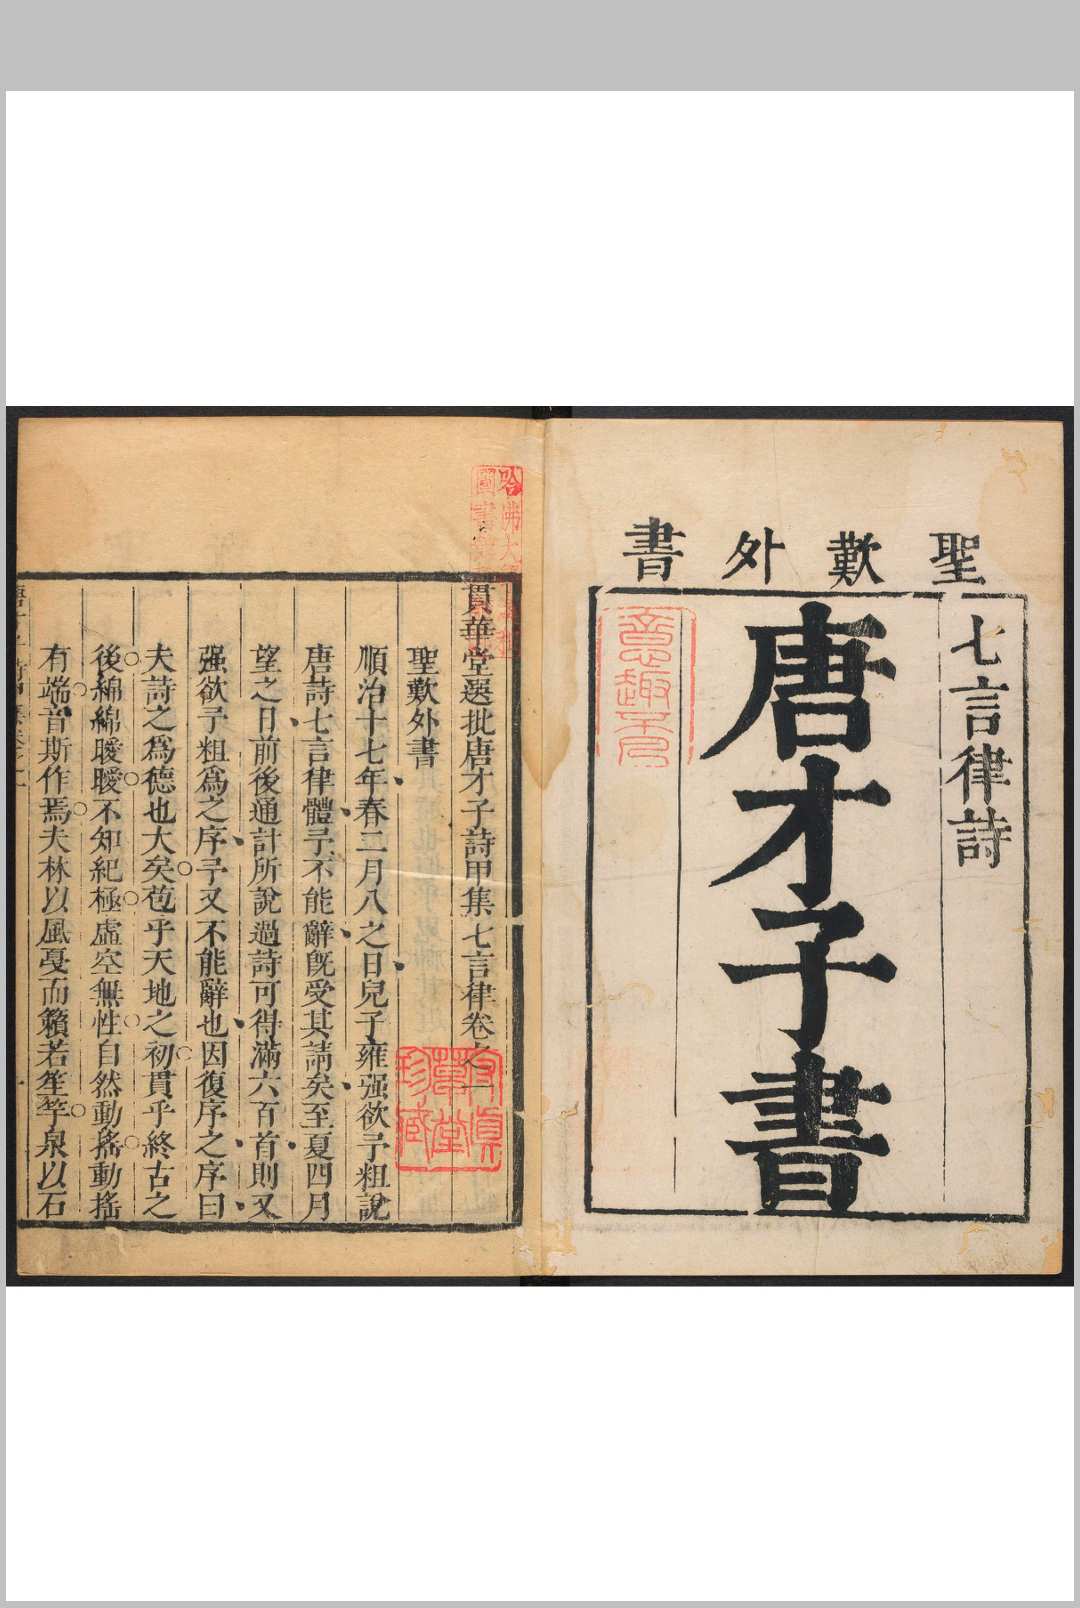 聖歎外書
七言律詩
唐才子書
貫華堂選批唐才子詩甲集七言律卷之一
聖歎外書
順治十七年春二月八之日兒子雍强欲予粗說
唐詩七言律體予不能辭旣受其請矣至夏四月
望之日前後通計所說過詩可得滿六百首則又
强欲予粗爲之序予又不能辭也因復序之序曰
夫詩之爲德也大矣苞乎天地之初貫乎終古之
後綿綿曖曖不知紀極虛空無性自然動搖動搖
有端音斯作焉夫林以風戞而籟若笙竽泉以石
意趣
草堂
珍藏
圖書